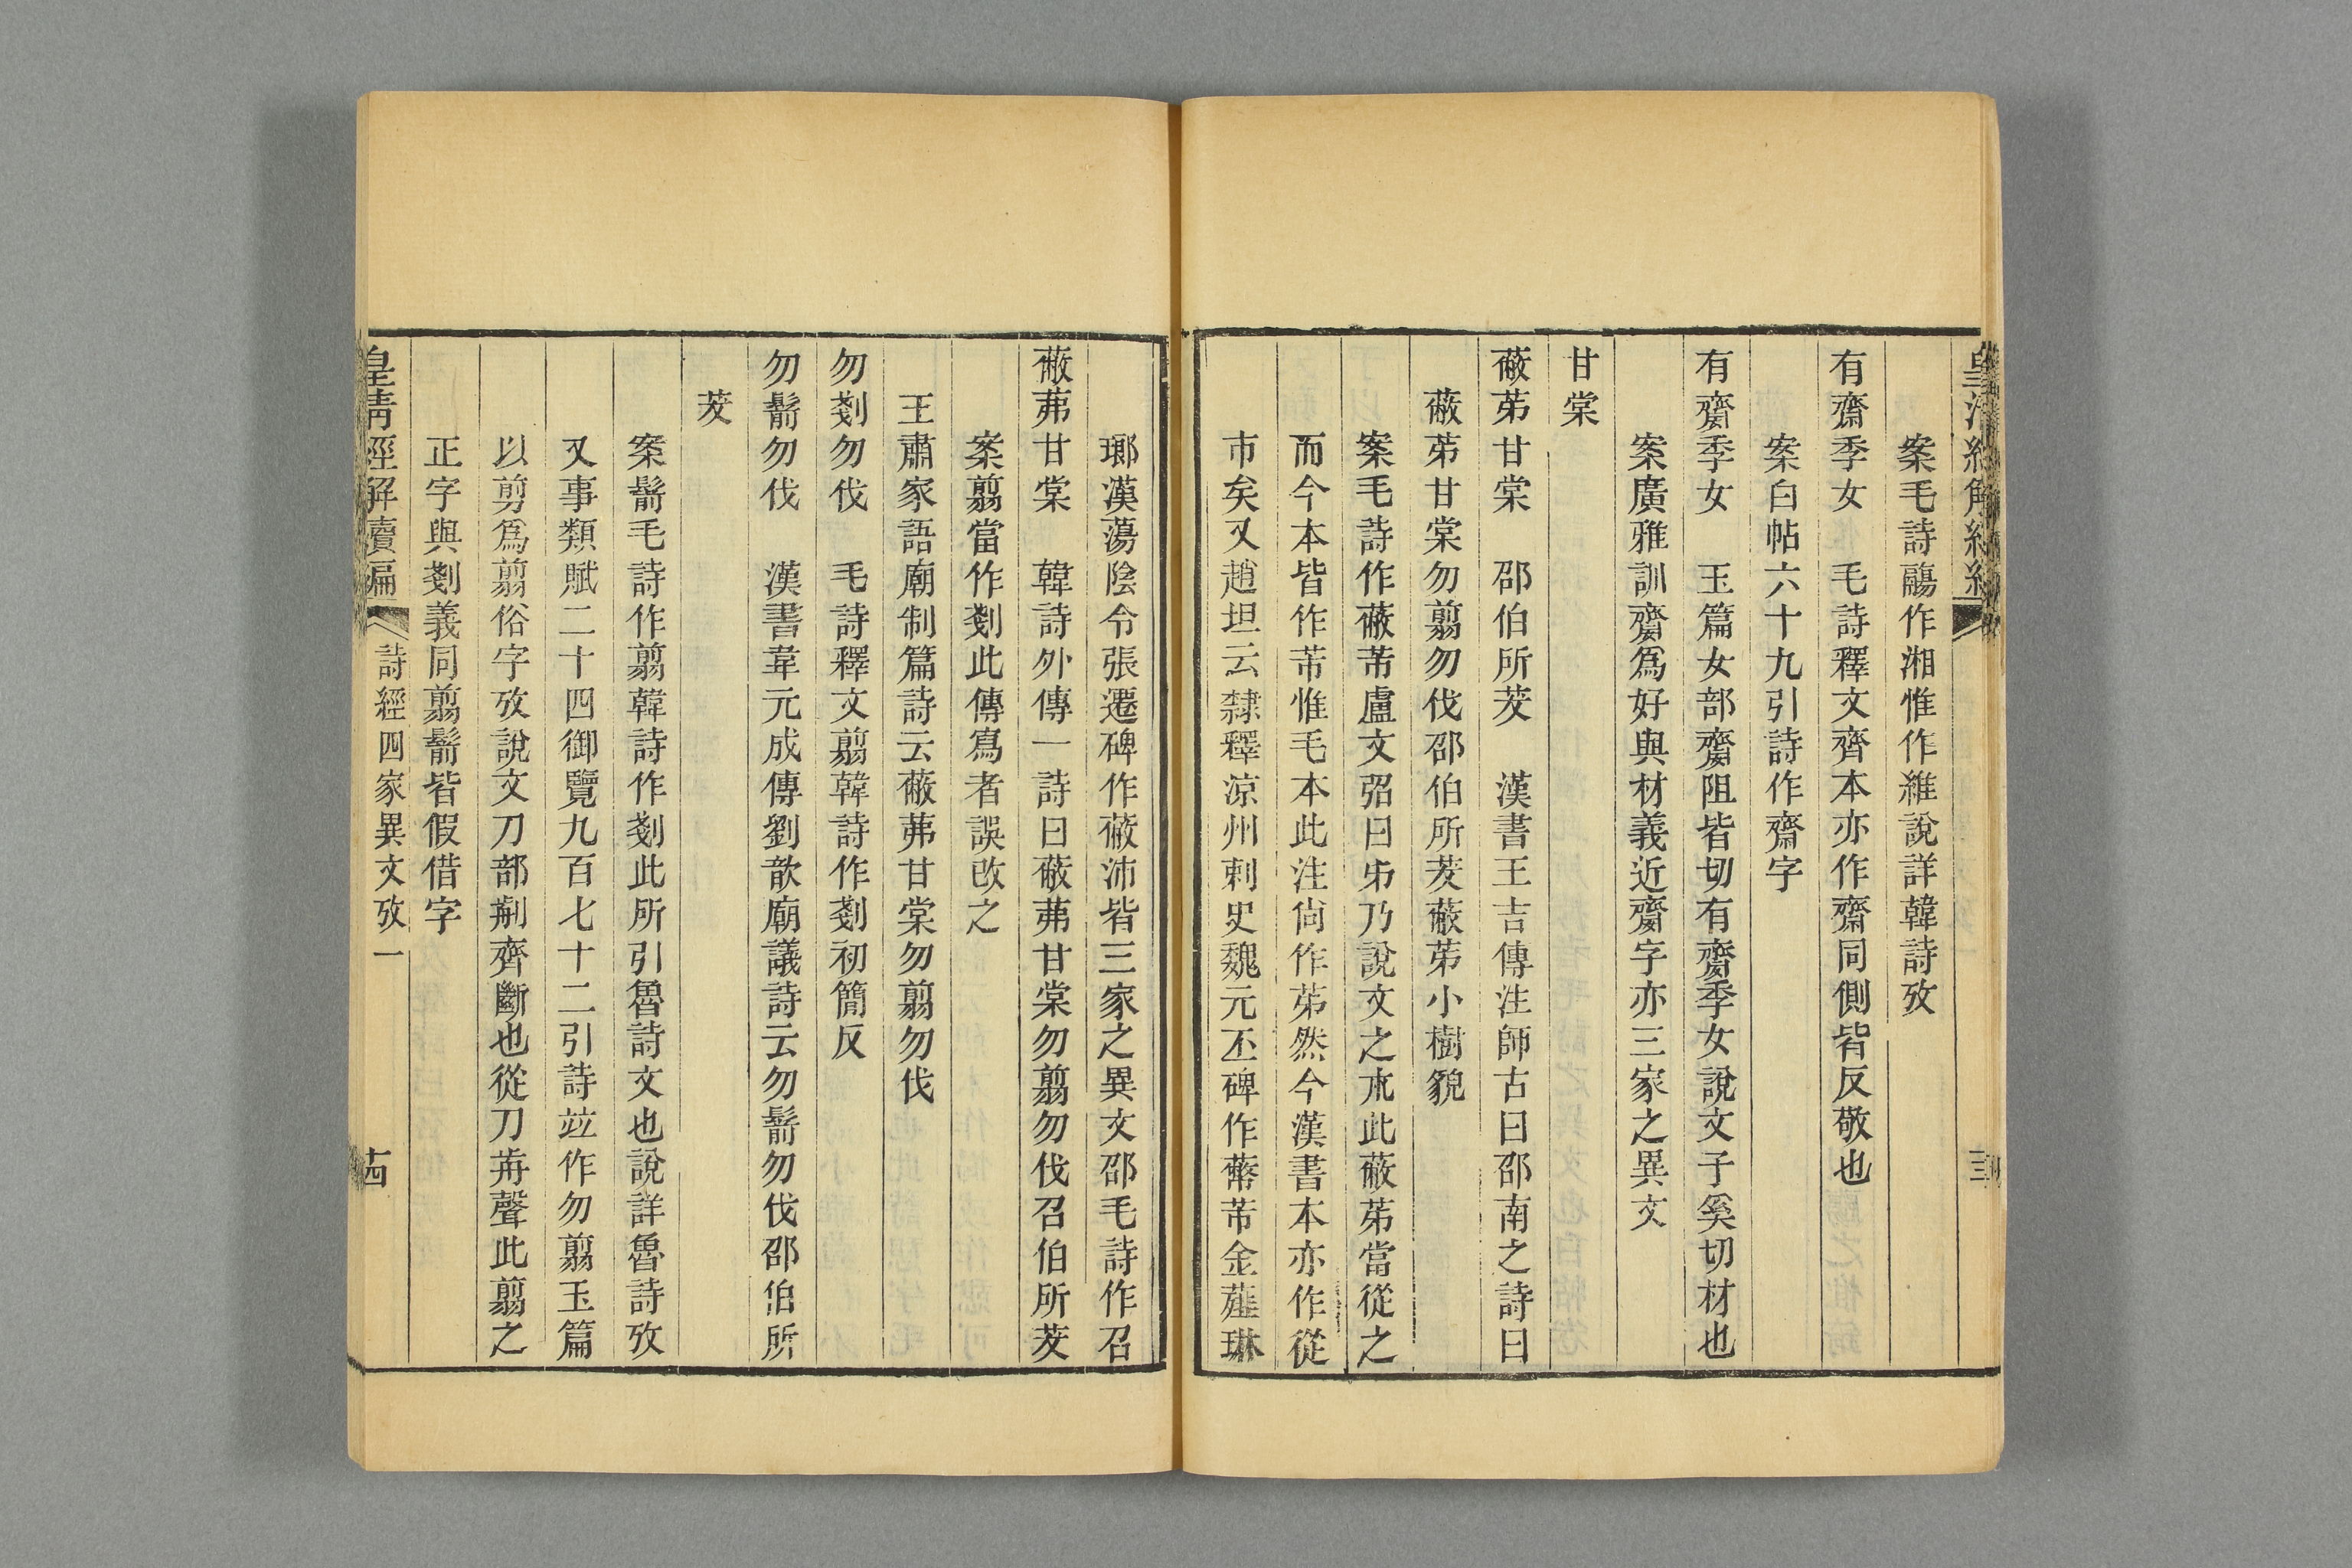 案毛詩鬺作湘惟作維說詳韓詩攷
有齋季女　毛詩釋文齊本亦作齋同側皆反敬也
案白帖六十九引詩作齋字
有齌季女　玉篇女部齌阻皆切有齌季女說文子奚切材也
案廣雅訓齌爲好與材義近齌字亦三家之異文
甘棠
蔽茀甘棠　邵伯所茇　漢書王吉傳注師古曰邵南之詩曰
蔽茀甘棠勿翦勿伐邵伯所茇蔽茀小樹貌
案毛詩作蔽芾盧文弨曰巿乃說文之朮此蔽茀當從之
而今本皆作芾惟毛本此注尙作茀然今漢書本亦作從
巿矣又趙坦云隸釋涼州刺史魏元丕碑作蔽芾金薤琳
瑯漢蕩陰令張遷碑作蔽沛皆三家之異文邵毛詩作召
蔽茀甘棠　韓詩外傳一詩曰蔽茀甘棠勿翦勿伐召伯所茇
案翦當作剗此傳寫者誤改之
王肅家語廟制篇詩云蔽茀甘棠勿翦勿伐
勿剗勿伐　毛詩釋文翦韓詩作剗初簡反
勿鬋勿伐　漢書韋元成傳劉歆廟議詩云勿鬋勿伐邵伯所
茇
案鬋毛詩作翦韓詩作剗此所引魯詩文也說詳魯詩攷
又事類賦二十四御覽九百七十二引詩竝作勿翦玉篇
以剪爲翦俗字攷說文刀部剬齊斷也從刀歬聲此翦之
正字與剗義同翦鬋皆假借字
皇清經解續編　詩經四家異文攷一　十四